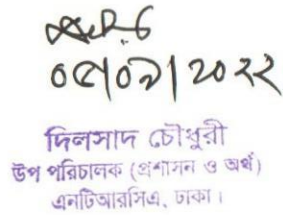 ০৫/০৯/২০২২
দিলসাদ চৌধুরী
উপ পরিচালক (প্রশাসন ও অর্থ)
এনটিআরসিএ, ঢাকা।